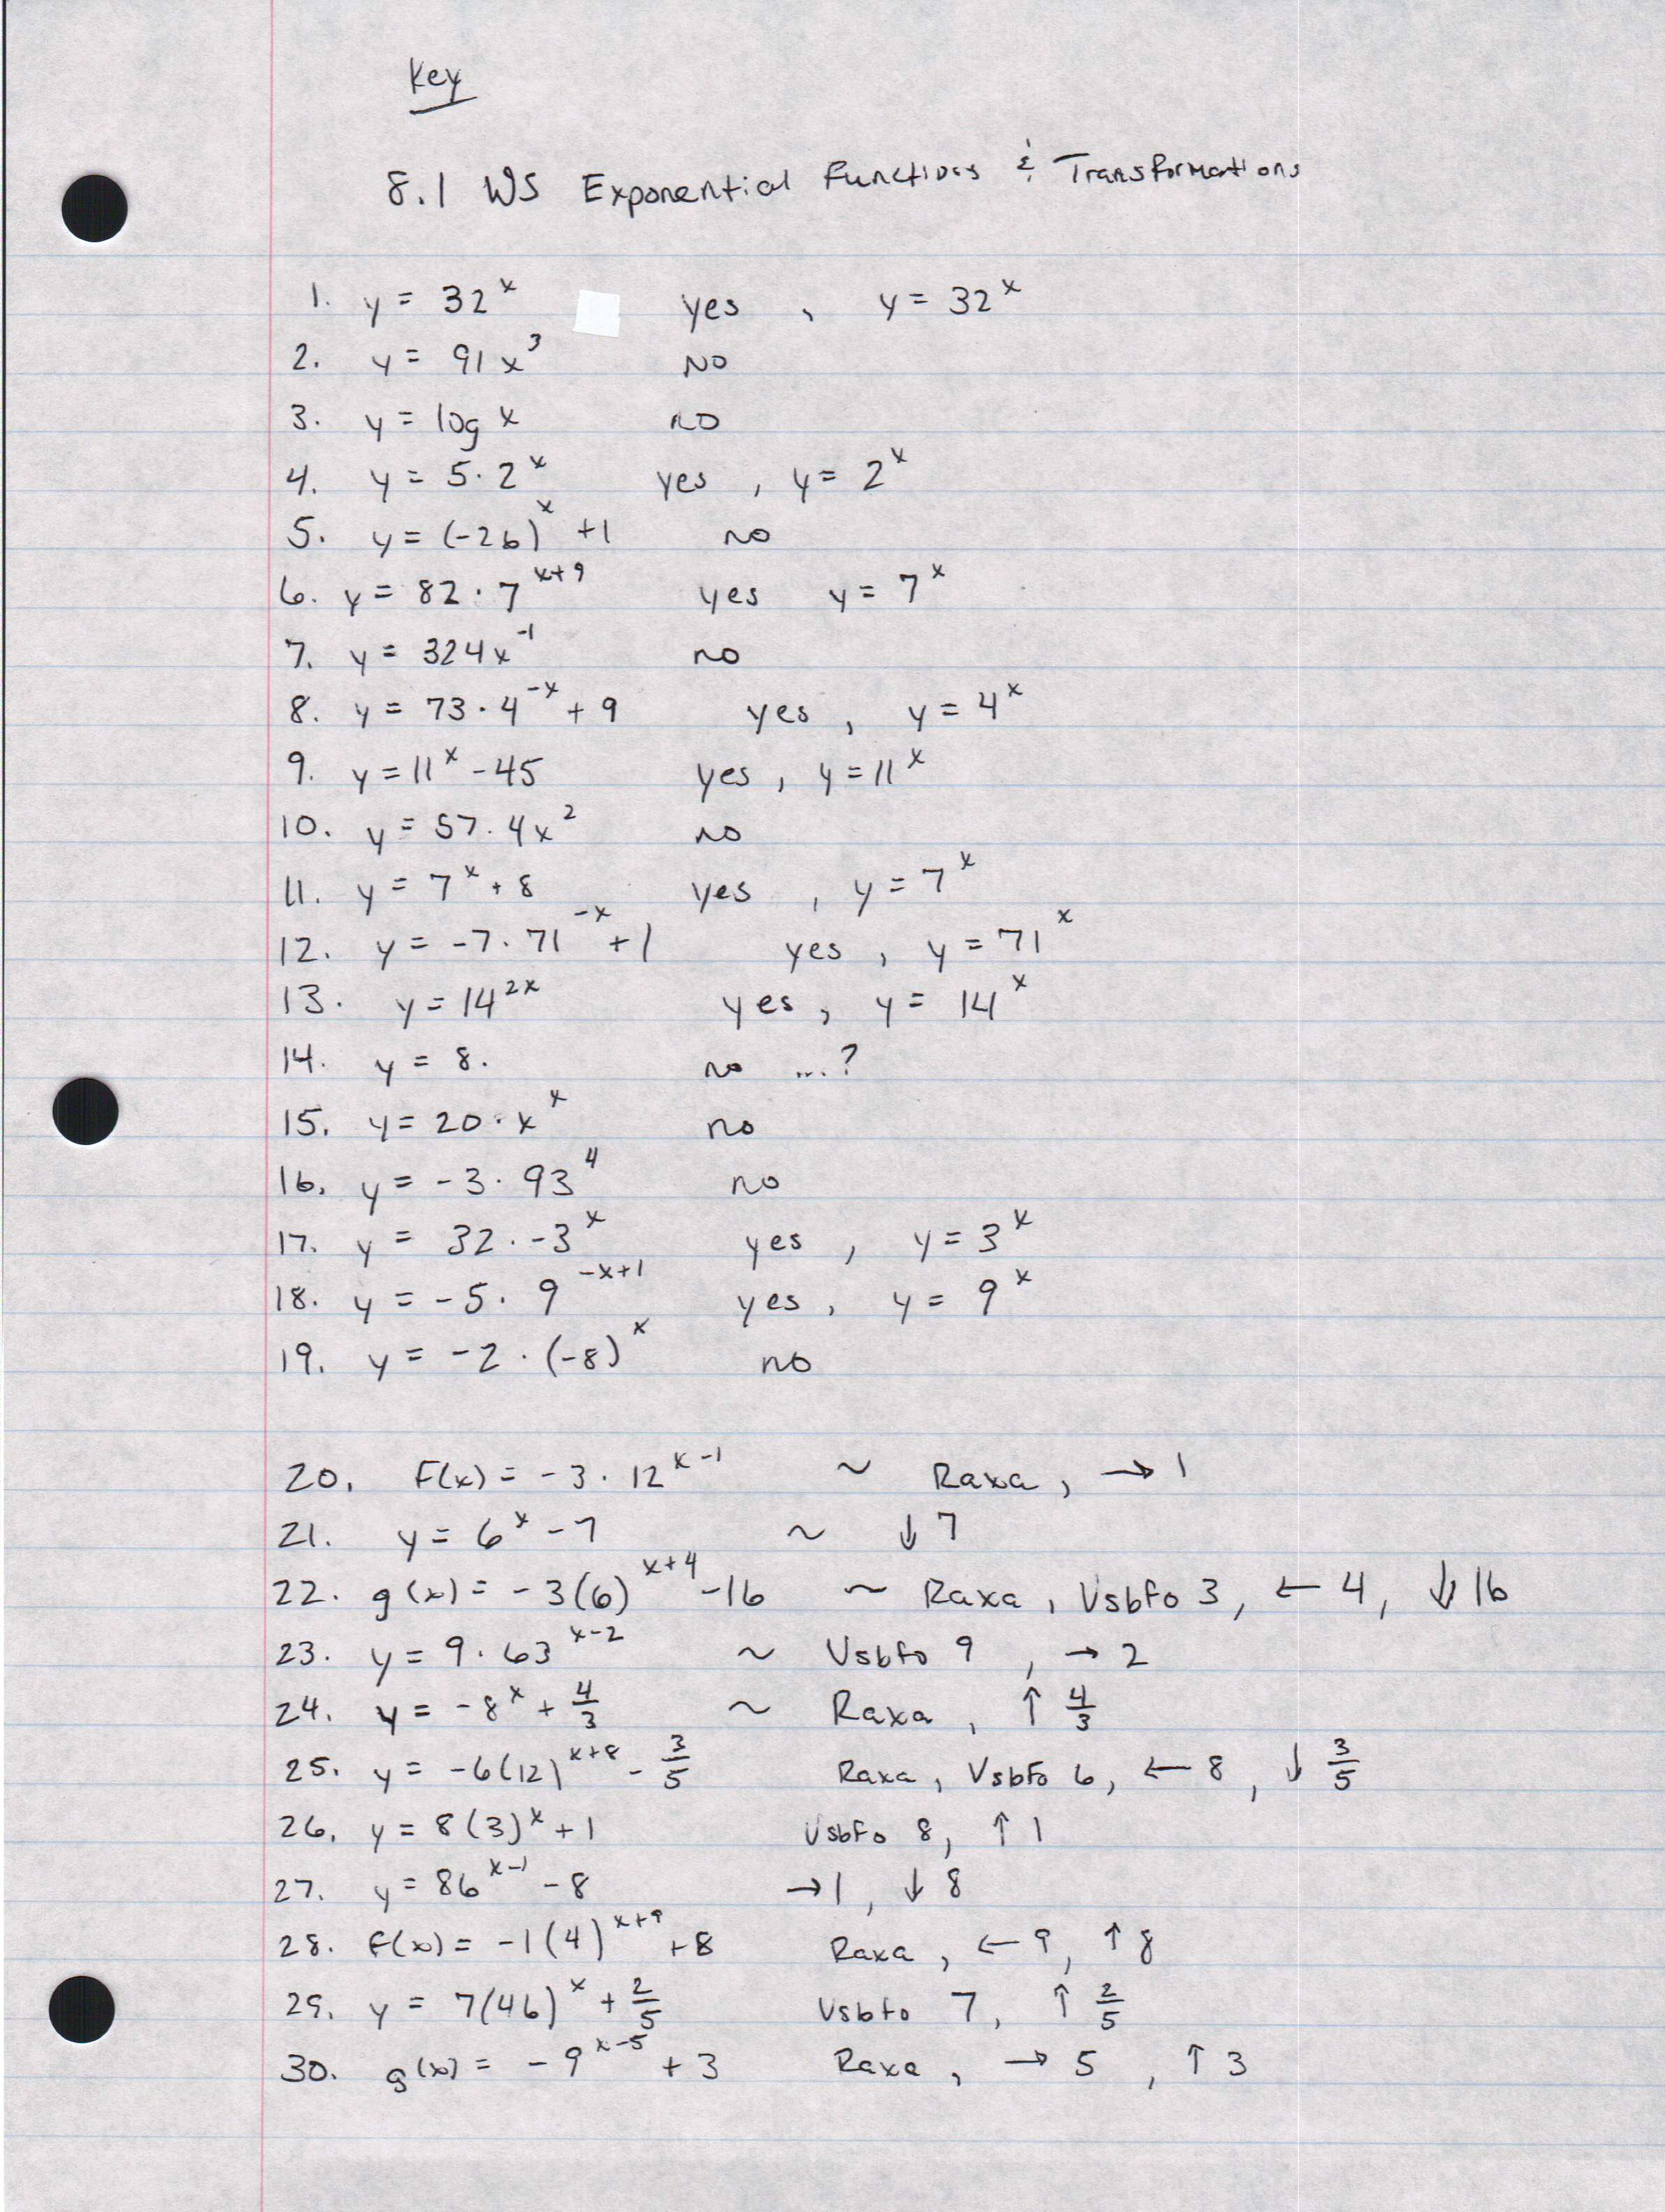 Key
8.1 WS Exponential Functions & Transformations
1. y = 32^x yes, y = 32^x
2. y = 91x^3 NO
3. y = log x no
4. y = 5·2^x yes, y = 2^x
5. y = (-26)^x +1 no
6. y = 82·7^(x+9) yes y = 7^x
7. y = 324x^-1 no
8. y = 73·4^-x + 9 yes, y = 4^x
9. y = 11^x - 45 yes, y = 11^x
10. y = 57.4x^2 no
11. y = 7^x + 8 yes, y = 7^x
12. y = -7·71^-x + 1 yes, y = 71^x
13. y = 14^2x yes, y = 14^x
14. y = 8. no ...?
15. y = 20·x^x no
16. y = -3·93^4 no
17. y = 32·-3^x yes, y = 3^x
18. y = -5·9^(-x+1) yes, y = 9^x
19. y = -2·(-8)^x no
20. F(x) = -3·12^(x-1) ~ Raxa, → 1
21. y = 6^x - 7 ~ ↓ 7
22. g(x) = -3(6)^(x+4) - 16 ~ Raxa, Vsbfo 3, ← 4, ↓ 16
23. y = 9·63^(x-2) ~ Vsbfo 9, → 2
24. y = -8^x + 4/3 ~ Raxa, ↑ 4/3
25. y = -6(12)^(x+8) - 3/5 Raxa, Vsbfo 6, ← 8, ↓ 3/5
26. y = 8(3)^x + 1 Vsbfo 8, ↑ 1
27. y = 86^(x-1) - 8 → 1, ↓ 8
28. F(x) = -1(4)^(x+9) + 8 Raxa, ← 9, ↑ 8
29. y = 7(46)^x + 2/5 Vsbfo 7, ↑ 2/5
30. g(x) = -9^(x-5) + 3 Raxa, → 5, ↑ 3